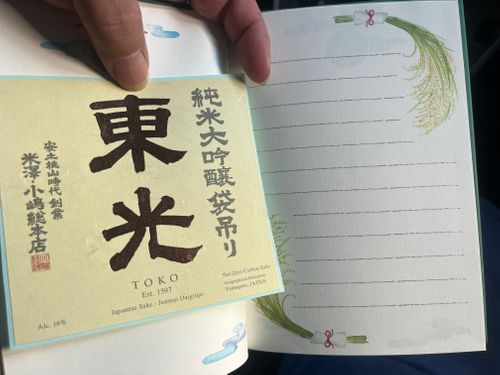 純米大吟醸 袋吊り
東光
安土桃山時代 創業
米澤・小嶋総本店
TOKO
Est. 1597
Japanese Sake - Junmai Daiginjo
Net-Zero Carbon Sake
Geographical Indication
Yamagata, JAPAN
Alc. 16%